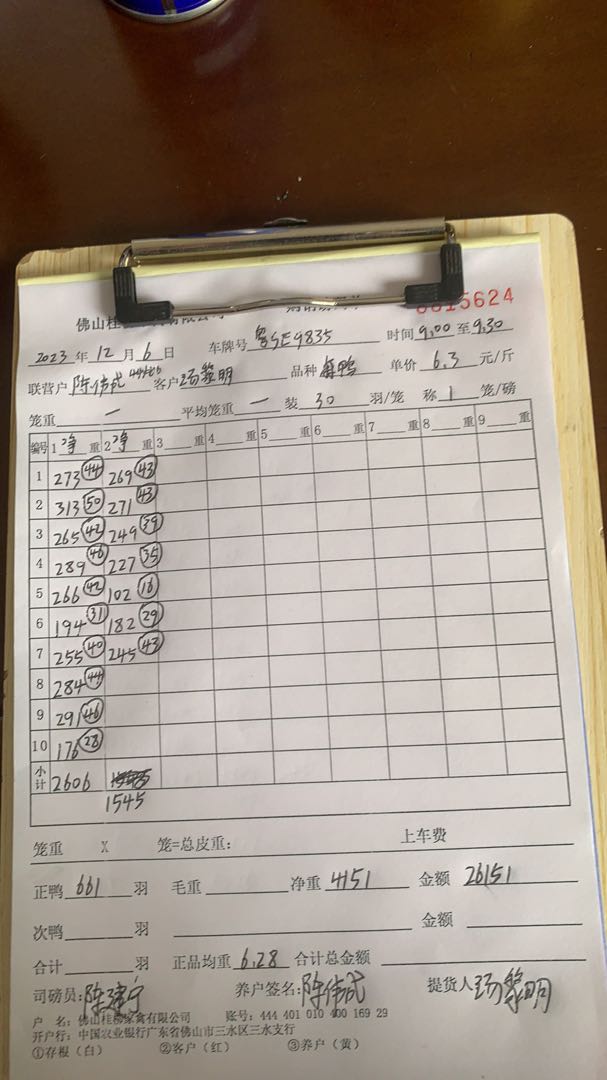 佛山桂
0815624
2023 年 12 月 6 日 车牌号 粤SE9835 时间 9.00 至 9.30
联营户 陈伟斌 客户 汤黎明 品种 单价 6.3 元/斤
笼重 一 平均笼重 一 装 30 羽/笼 称 1 笼/磅
编号 1 净 重 2 净 重 3 重 4 重 5 重 6 重 7 重 8 重 9 重
1 273 44 269 43
2 313 50 271 43
3 265 42 249 39
4 289 46 227 35
5 266 42 102 16
6 194 31 182 29
7 255 40 245 43
8 284 44
9 291 46
10 176 28
小计 2606
1545
笼重 X 笼=总皮重: 上车费
正鸭 661 羽 毛重 净重 4151 金额 26151
次鸭 羽 金额
合计 羽 正品均重 6.28 合计总金额
司磅员: 陈建宁 养户签名: 陈伟斌 提货人 汤黎明
户 名: 佛山桂柳家禽有限公司 账号: 444 401 010 400 169 29
开户行: 中国农业银行广东省佛山市三水区三水支行
①存根(白) ②客户(红) ③养户(黄)